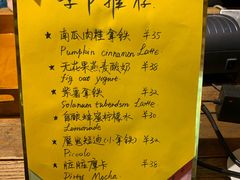 季节推荐
★ 南瓜肉桂拿铁 ¥35
Pumpkin cinnamon Latte
★ 无花果燕麦酸奶 ¥38
fig oat yogurt
★ 紫薯拿铁 ¥32
Solanum tuberdsm Latte
★ 自酿蜂蜜柠檬水 ¥30
Lemonade
★ 魔鬼短笛(小拿铁) ¥32
Piccolo
★ 脏脏摩卡 ¥38
Dirty Mocha